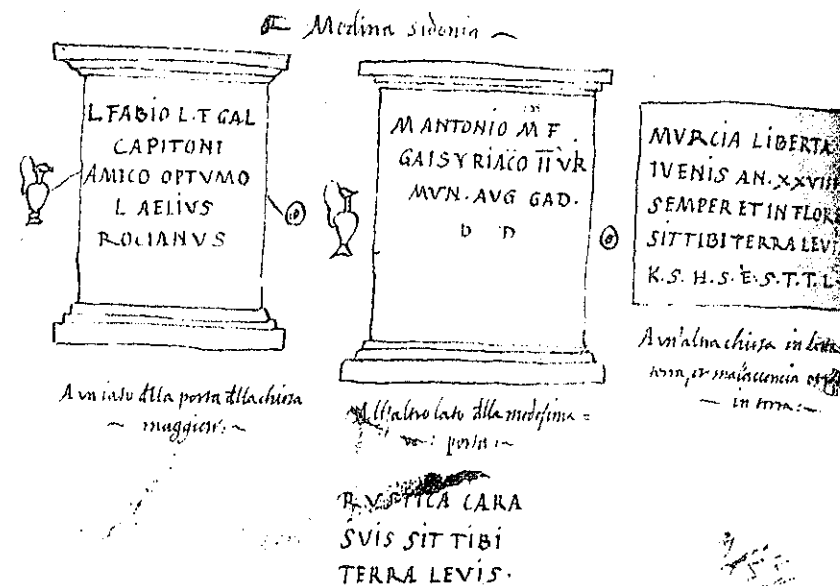 Medina sidonia
L. FABIO L. F GAL
CAPITONI
AMICO OPTVMO
L AELIVS
ROCIANVS
A un lato della porta della chiesa
maggiore
M ANTONIO M F
GAL SYRIACO II VIR
MVN. AVG GAD.
D D
All'altro lato della medesima
porta
MVRCIA LIBERTA
IVENIS AN. XXVIII
SEMPER ET IN FLOR
SIT TIBI TERRA LEVI
K. S. H. S. E. S. T. T. L
A un'altra chiesa in
terra, et
in terra
RVSTICA CARA
SVIS SIT TIBI
TERRA LEVIS.